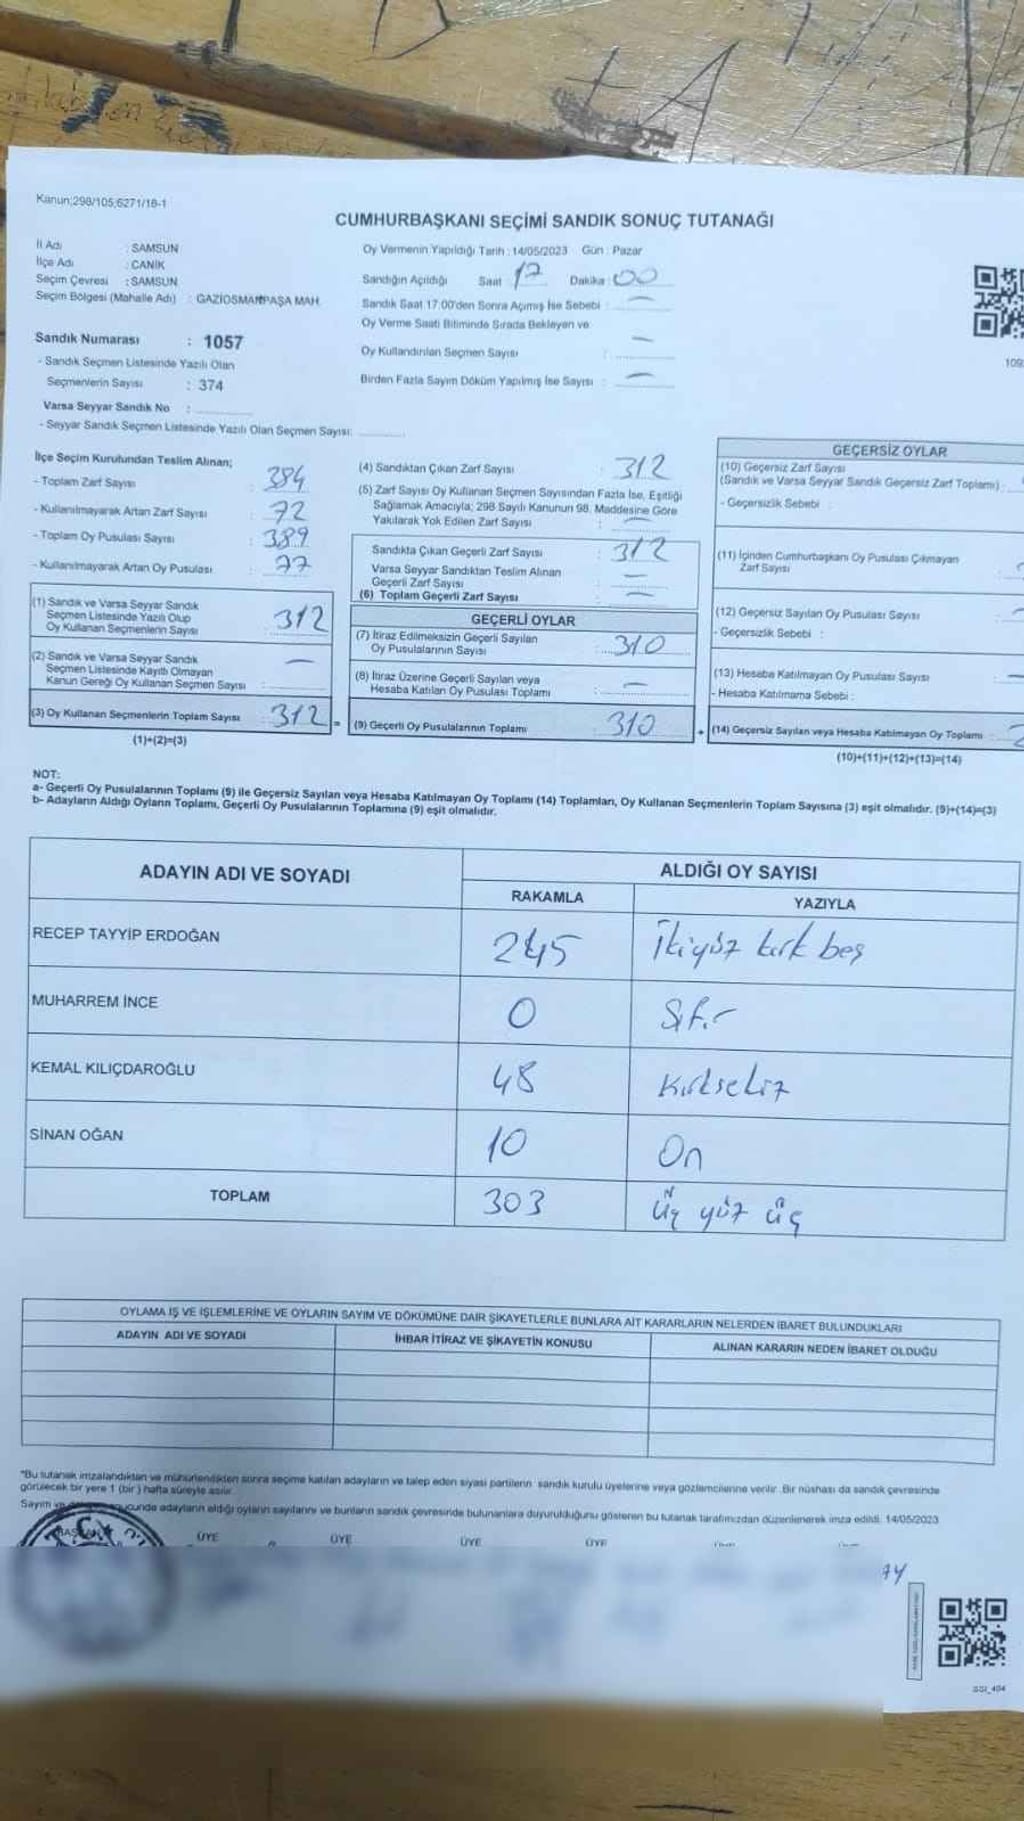 Kanun;298/105;6271/18-1
CUMHURBAŞKANI SEÇİMİ SANDIK SONUÇ TUTANAĞI
İl Adı : SAMSUN
İlçe Adı : CANİK
Seçim Çevresi : SAMSUN
Seçim Bölgesi (Mahalle Adı) : GAZİOSMANPAŞA MAH.
Sandık Numarası : 1057
- Sandık Seçmen Listesinde Yazılı Olan
Seçmenlerin Sayısı : 374
Varsa Seyyar Sandık No :
- Seyyar Sandık Seçmen Listesinde Yazılı Olan Seçmen Sayısı:
Oy Vermenin Yapıldığı Tarih : 14/05/2023 Gün : Pazar
Sandığın Açıldığı Saat 17 Dakika : 00
Sandık Saat 17.00'den Sonra Açımış İse Sebebi : —
Oy Verme Saati Bitiminde Sırada Bekleyen ve
Oy Kullandırılan Seçmen Sayısı : —
Birden Fazla Sayım Döküm Yapılmış İse Sayısı : —
109
İlçe Seçim Kurulundan Teslim Alınan;
- Toplam Zarf Sayısı : 384
- Kullanılmayarak Artan Zarf Sayısı : 72
- Toplam Oy Pusulası Sayısı : 389
- Kullanılmayarak Artan Oy Pusulası : 77
(1) Sandık ve Varsa Seyyar Sandık
Seçmen Listesinde Yazılı Olup
Oy Kullanan Seçmenlerin Sayısı : 312
(2) Sandık ve Varsa Seyyar Sandık
Seçmen Listesinde Kayıtlı Olmayan
Kanun Gereği Oy Kullanan Seçmen Sayısı : —
(3) Oy Kullanan Seçmenlerin Toplam Sayısı : 312 =
(1)+(2)=(3)
(4) Sandıktan Çıkan Zarf Sayısı : 312
(5) Zarf Sayısı Oy Kullanan Seçmen Sayısından Fazla İse, Eşitliği
Sağlamak Amacıyla; 298 Sayılı Kanunun 98. Maddesine Göre
Yakılarak Yok Edilen Zarf Sayısı : —
Sandıkta Çıkan Geçerli Zarf Sayısı : 312
Varsa Seyyar Sandıktan Teslim Alınan
Geçerli Zarf Sayısı : —
(6) Toplam Geçerli Zarf Sayısı : —
GEÇERLİ OYLAR
(7) İtiraz Edilmeksizin Geçerli Sayılan
Oy Pusulalarının Sayısı : 310
(8) İtiraz Üzerine Geçerli Sayılan veya
Hesaba Katılan Oy Pusulası Toplamı : —
(9) Geçerli Oy Pusulalarının Toplamı : 310 +
GEÇERSİZ OYLAR
(10) Geçersiz Zarf Sayısı
(Sandık ve Varsa Seyyar Sandık Geçersiz Zarf Toplamı) :
- Geçersizlik Sebebi :
(11) İçinden Cumhurbaşkanı Oy Pusulası Çıkmayan
Zarf Sayısı :
(12) Geçersiz Sayılan Oy Pusulası Sayısı :
- Geçersizlik Sebebi :
(13) Hesaba Katılmayan Oy Pusulası Sayısı :
- Hesaba Katılmama Sebebi :
(14) Geçersiz Sayılan veya Hesaba Katılmayan Oy Toplamı :
(10)+(11)+(12)+(13)=(14)
NOT:
a- Geçerli Oy Pusulalarının Toplamı (9) ile Geçersiz Sayılan veya Hesaba Katılmayan Oy Toplamı (14) Toplamları, Oy Kullanan Seçmenlerin Toplam Sayısına (3) eşit olmalıdır. (9)+(14)=(3)
b- Adayların Aldığı Oyların Toplamı, Geçerli Oy Pusulalarının Toplamına (9) eşit olmalıdır.
ADAYIN ADI VE SOYADI ALDIĞI OY SAYISI
RAKAMLA YAZIYLA
RECEP TAYYİP ERDOĞAN 245 İkiyüz kırk beş
MUHARREM İNCE 0 Sıfır
KEMAL KILIÇDAROĞLU 48 Kırksekiz
SİNAN OĞAN 10 On
TOPLAM 303 üç yüz üç
OYLAMA İŞ VE İŞLEMLERİNE VE OYLARIN SAYIM VE DÖKÜMÜNE DAİR ŞİKAYETLERLE BUNLARA AİT KARARLARIN NELERDEN İBARET BULUNDUKLARI
ADAYIN ADI VE SOYADI İHBAR İTİRAZ VE ŞİKAYETİN KONUSU ALINAN KARARIN NEDEN İBARET OLDUĞU
*Bu tutanak imzalandıktan ve mühürlendikten sonra seçime katılan adayların ve talep eden siyasi partilerin sandık kurulu üyelerine veya gözlemcilerine verilir. Bir nüshası da sandık çevresinde
görülecek bir yere 1 (bir) hafta süreyle asılır.
Sayım ve adayların aldığı oyların sayılarını ve bunların sandık çevresinde bulunanlara duyurulduğunu gösteren bu tutanak tarafımızdan düzenlenerek imza edildi. 14/05/2023
BAŞKAN ÜYE ÜYE ÜYE ÜYE